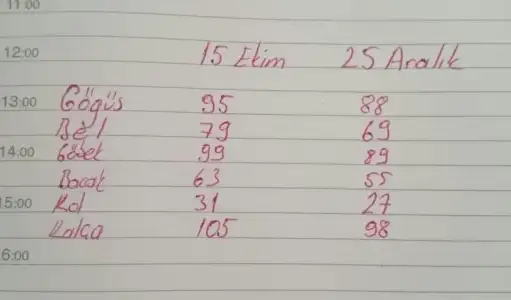 11:00
12:00 15 Ekim 25 Aralık
13:00 Göğüs 95 88
Bel 79 69
14:00 Göbek 99 89
Bacak 63 55
15:00 Kol 31 27
Kalça 105 98
6:00